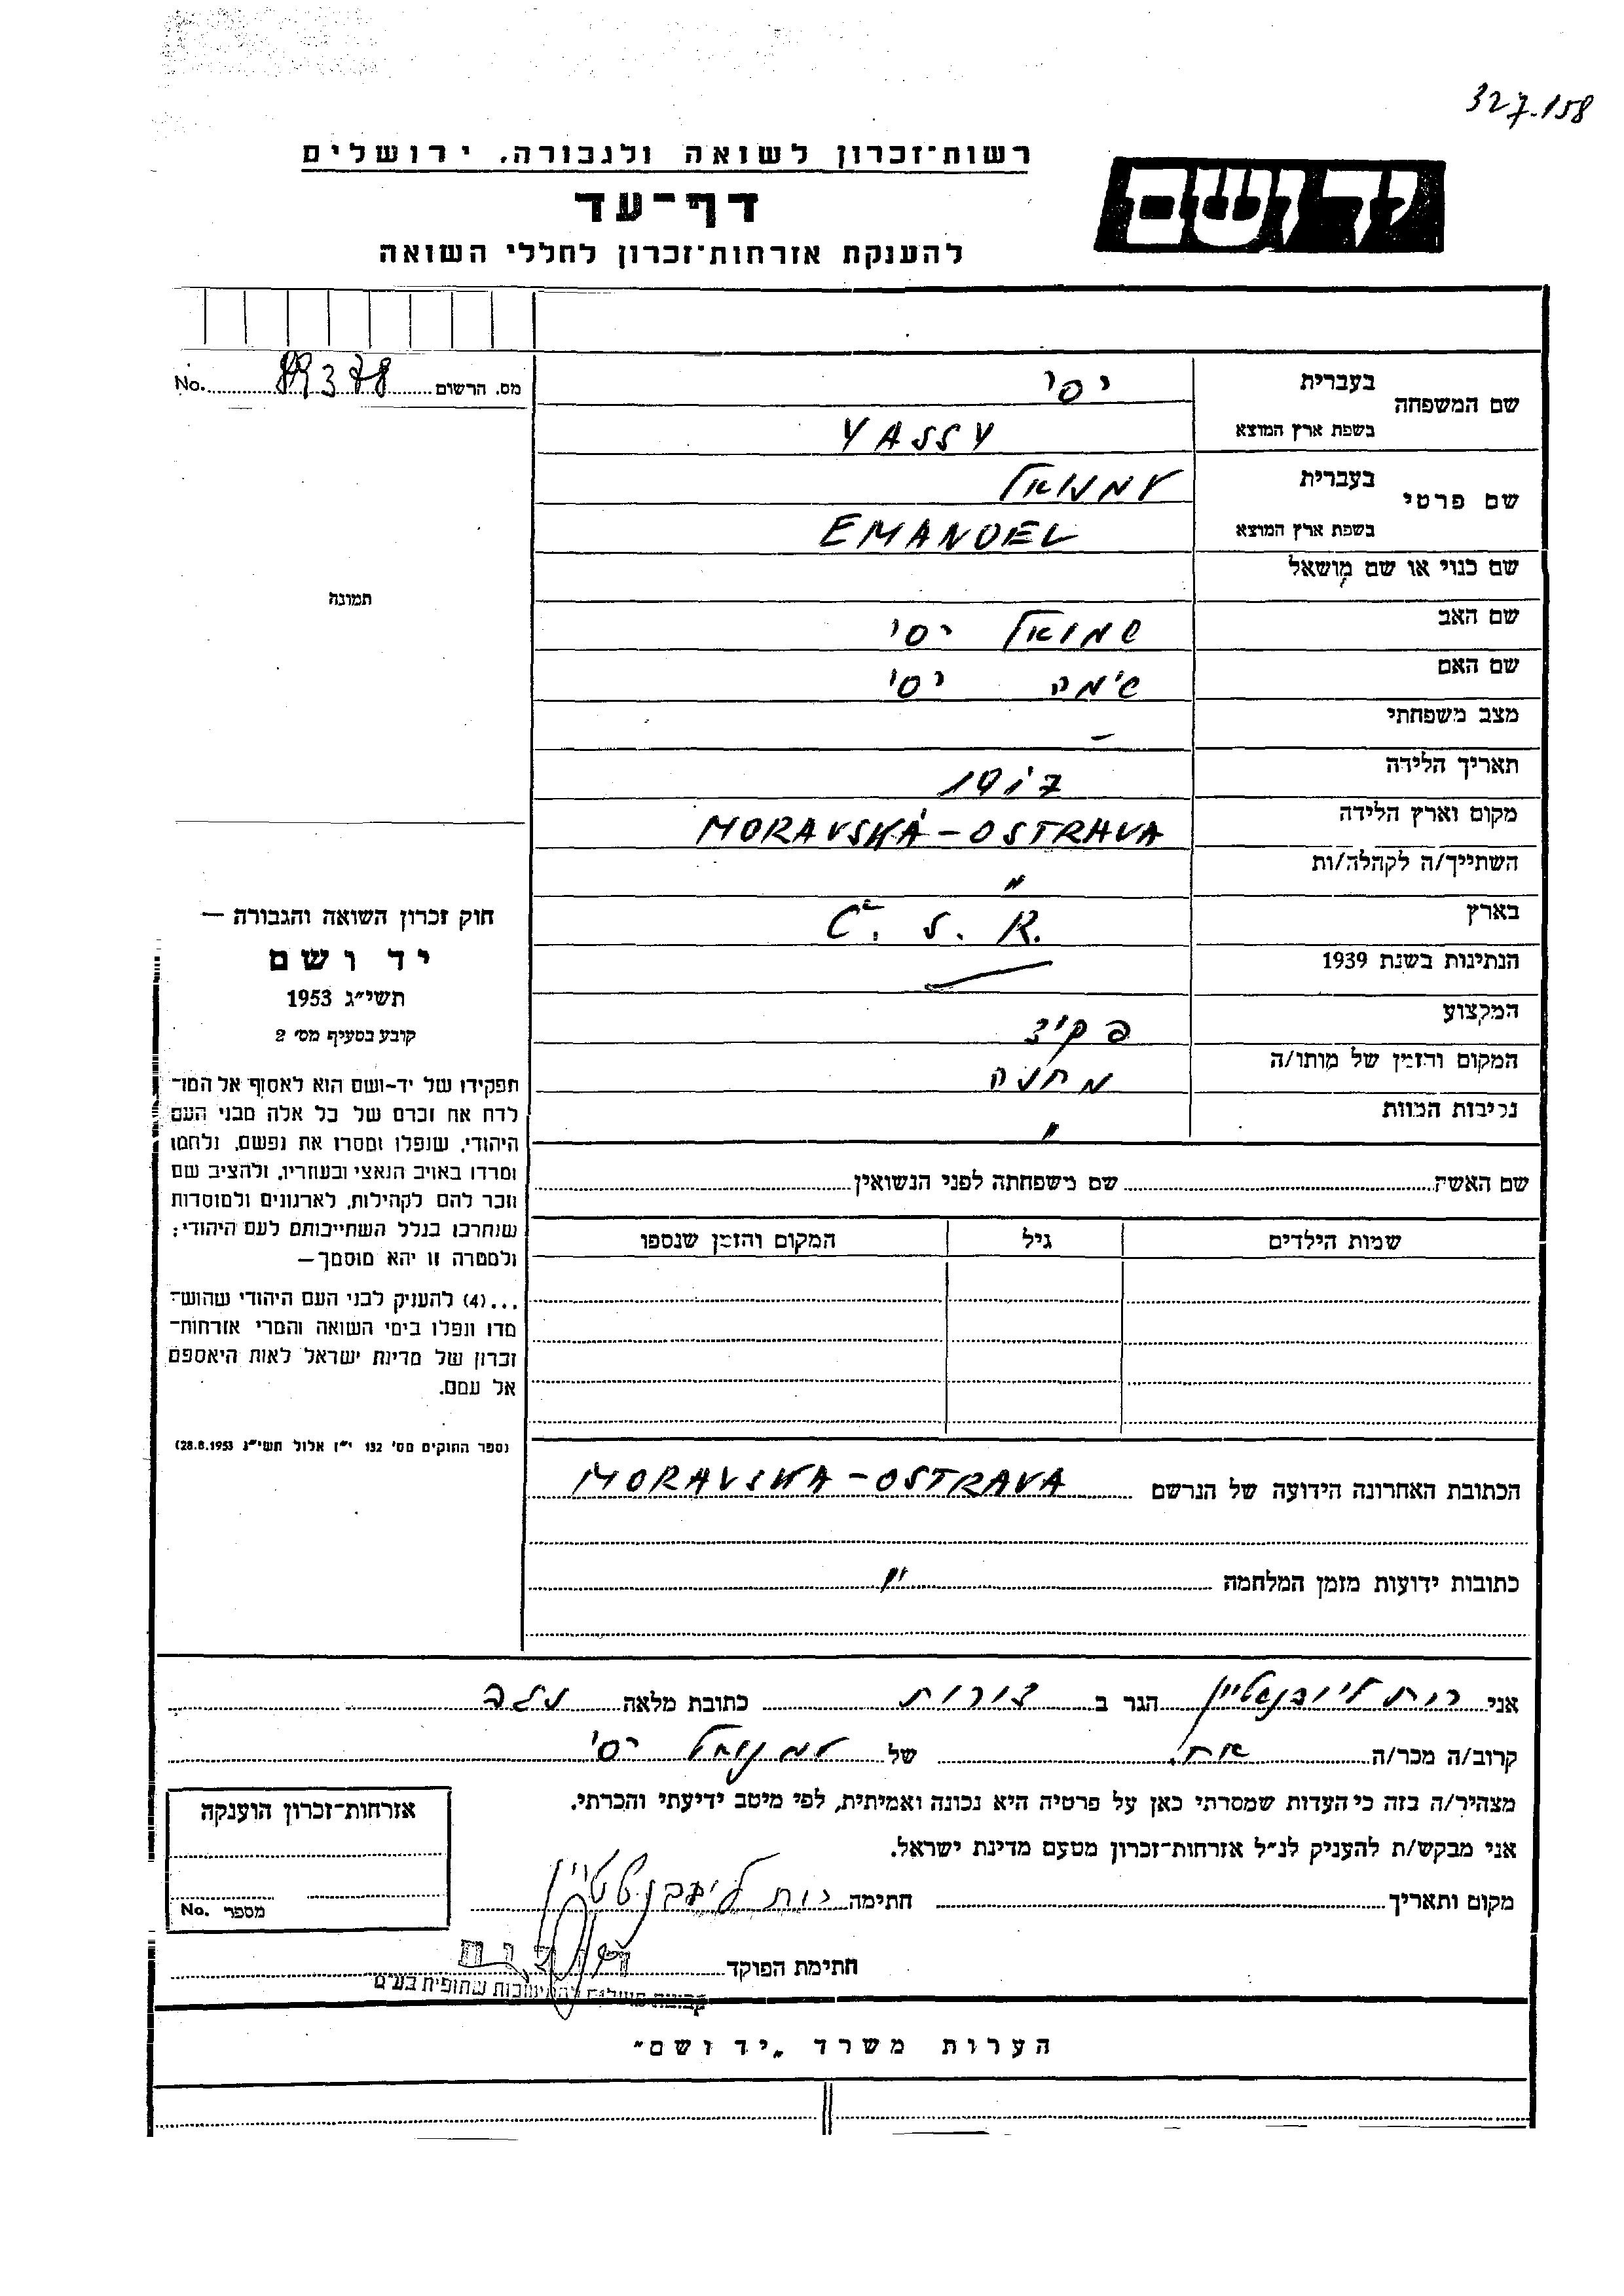 327.158
רשות-זכרון לשואה ולגבורה, ירושלים
יד ושם
דף-עד
להענקת אזרחות-זכרון לחללי השואה
מס. הרשום 89378 No.
שם המשפחה
בעברית יסי
בשפת ארץ המוצא YASSY
שם פרטי
בעברית עמנואל
בשפת ארץ המוצא EMANOEL
שם כנוי או שם מושאל
שם האב שמואל יסי
שם האם שימה יסי
מצב משפחתי –
תאריך הלידה
מקום וארץ הלידה MORAVSKÁ-OSTRAVA
השתייך/ה לקהלה/ות "
בארץ Č. S. R.
הנתינות בשנת 1939
המקצוע פקיד
המקום והזמן של מותו/ה מחנה
נסיבות המוות "
שם האשה שם משפחתה לפני הנשואין
שמות הילדים גיל המקום והזמן שנספו
תמונה
חוק זכרון השואה והגבורה —
יד ושם
תשי"ג 1953
קובע בסעיף מס' 2
תפקידו של יד-ושם הוא לאסוף אל המו-
לדת את זכרם של כל אלה מבני העם
היהודי, שנפלו ומסרו את נפשם, נלחמו
ומרדו באויב הנאצי ובעוזריו, ולהציב שם
וזכר להם לקהילות, לארגונים ולמוסדות
שנחרבו בגלל השתייכותם לעם היהודי;
ולמטרה זו יהא מוסמך —
...(4) להעניק לבני העם היהודי שהוש-
מדו ונפלו בימי השואה והמרי אזרחות-
זכרון של מדינת ישראל לאות היאספם
אל עמם.
(ספר החוקים מס' 132 י"ז אלול תשי"ג 28.8.1953)
הכתובת האחרונה הידועה של הנרשם MORAVSKA-OSTRAVA
כתובות ידועות מזמן המלחמה "
אני רות ליובנשטיין הגר ב דורות כתובת מלאה נגב
קרוב/ה מכר/ה של עמנואל יסי
מצהיר/ה בזה כי העדות שמסרתי כאן על פרטיה היא נכונה ואמיתית, לפי מיטב ידיעתי והכרתי.
אני מבקש/ת להעניק לנ"ל אזרחות-זכרון מטעם מדינת ישראל.
מקום ותאריך חתימה רות ליובנשטיין
חתימת הפוקד
דורות
אזרחות-זכרון הוענקה
מספר No.
הערות משרד "יד ושם"